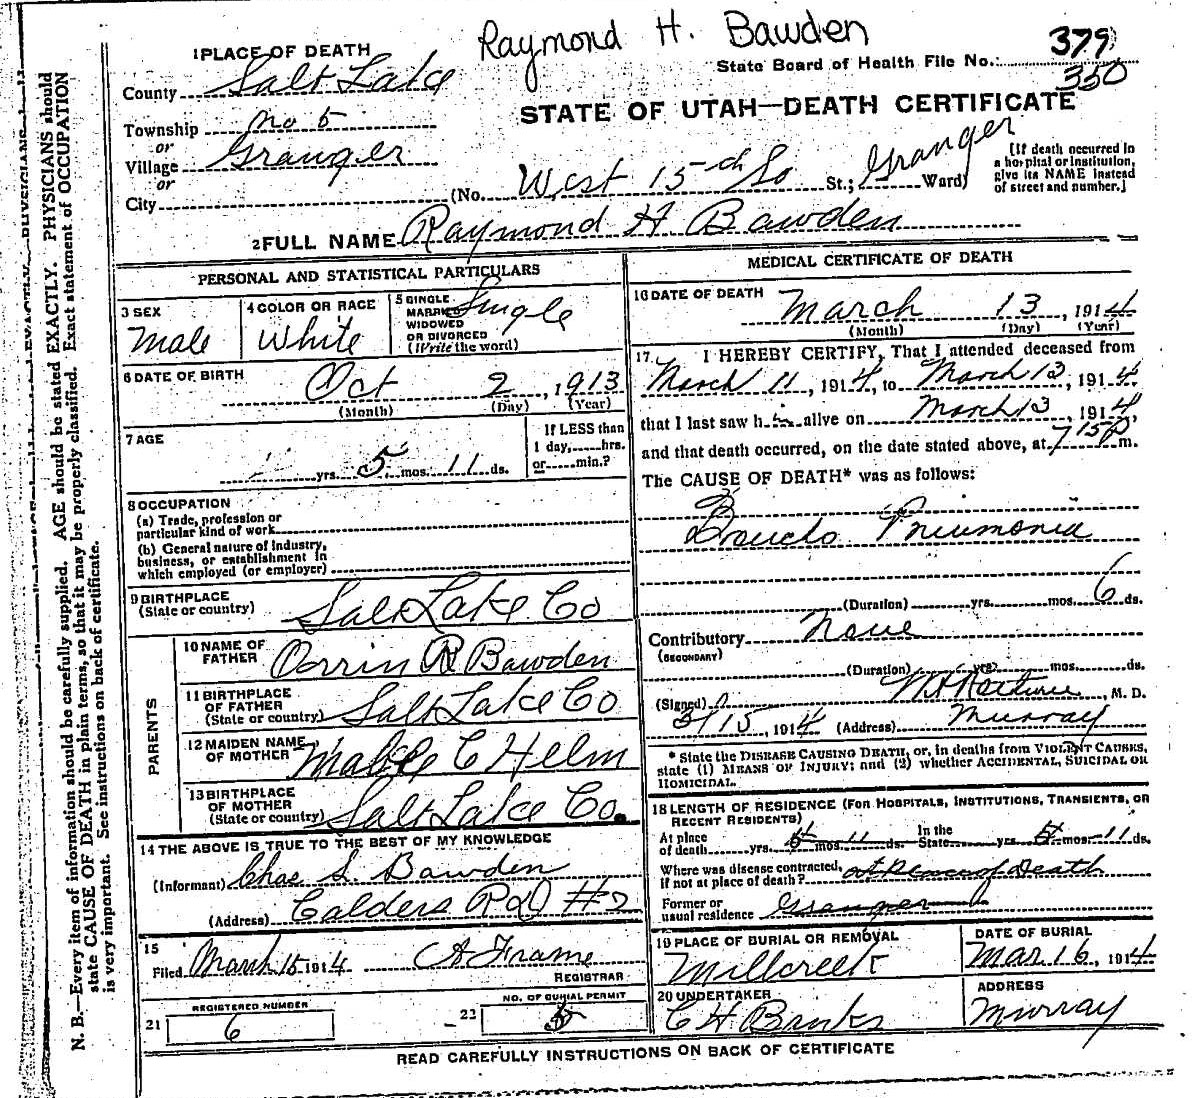 Raymond H. Bawden
1 PLACE OF DEATH
State Board of Health File No.: 379
350
County Salt Lake
STATE OF UTAH—DEATH CERTIFICATE
Township No 5
or
Village Granger
or
City
(No. West 15th So St.; Granger Ward)
[If death occurred in a hospital or institution, give its NAME instead of street and number.]
2 FULL NAME Raymond H Bawden
PERSONAL AND STATISTICAL PARTICULARS
3 SEX
Male
4 COLOR OR RACE
White
5 SINGLE
MARRIED
WIDOWED
OR DIVORCED
(Write the word)
Single
6 DATE OF BIRTH
Oct 2, 1913
(Month) (Day) (Year)
7 AGE
yrs. 5 mos. 11 ds.
If LESS than
1 day, hrs.
or min.?
8 OCCUPATION
(a) Trade, profession or
particular kind of work
(b) General nature of industry,
business, or establishment in
which employed (or employer)
9 BIRTHPLACE
(State or country) Salt Lake Co
PARENTS
10 NAME OF
FATHER Orrin R Bawden
11 BIRTHPLACE
OF FATHER
(State or country) Salt Lake Co
12 MAIDEN NAME
OF MOTHER Mable C Helm
13 BIRTHPLACE
OF MOTHER
(State or country) Salt Lake Co.
14 THE ABOVE IS TRUE TO THE BEST OF MY KNOWLEDGE
(Informant) Chas S. Bawden
(Address) Calders RD #2
15
Filed March 15 1914 A Frame
REGISTRAR
REGISTERED NUMBER
21 6
NO. OF BURIAL PERMIT
22 5
MEDICAL CERTIFICATE OF DEATH
16 DATE OF DEATH
March 13, 1914
(Month) (Day) (Year)
17 I HEREBY CERTIFY, That I attended deceased from
March 11, 1914, to March 13, 1914
that I last saw h alive on March 13, 1914,
and that death occurred, on the date stated above, at 7 15 P m.
The CAUSE OF DEATH* was as follows:
Broncho Pneumonia
(Duration) yrs. mos. 6 ds.
Contributory None
(SECONDARY)
(Duration) yrs. mos. ds.
(Signed) , M. D.
3/15, 1914 (Address) Murray
* State the DISEASE CAUSING DEATH, or, in deaths from VIOLENT CAUSES,
state (1) MEANS OF INJURY; and (2) whether ACCIDENTAL, SUICIDAL OR
HOMICIDAL.
18 LENGTH OF RESIDENCE (FOR HOSPITALS, INSTITUTIONS, TRANSIENTS, OR
RECENT RESIDENTS)
At place
of death yrs. 5 mos. 11 ds. In the
State yrs. 5 mos. 11 ds.
Where was disease contracted,
if not at place of death? at Place of Death
Former or
usual residence Granger
19 PLACE OF BURIAL OR REMOVAL
Millcreek
DATE OF BURIAL
Mar 16, 1914
20 UNDERTAKER
C H Banks
ADDRESS
Murray
READ CAREFULLY INSTRUCTIONS ON BACK OF CERTIFICATE
N. B.—Every item of information should be carefully supplied. AGE should be stated EXACTLY. PHYSICIANS should
state CAUSE OF DEATH in plain terms, so that it may be properly classified. Exact statement of OCCUPATION
is very important. See instructions on back of certificate.